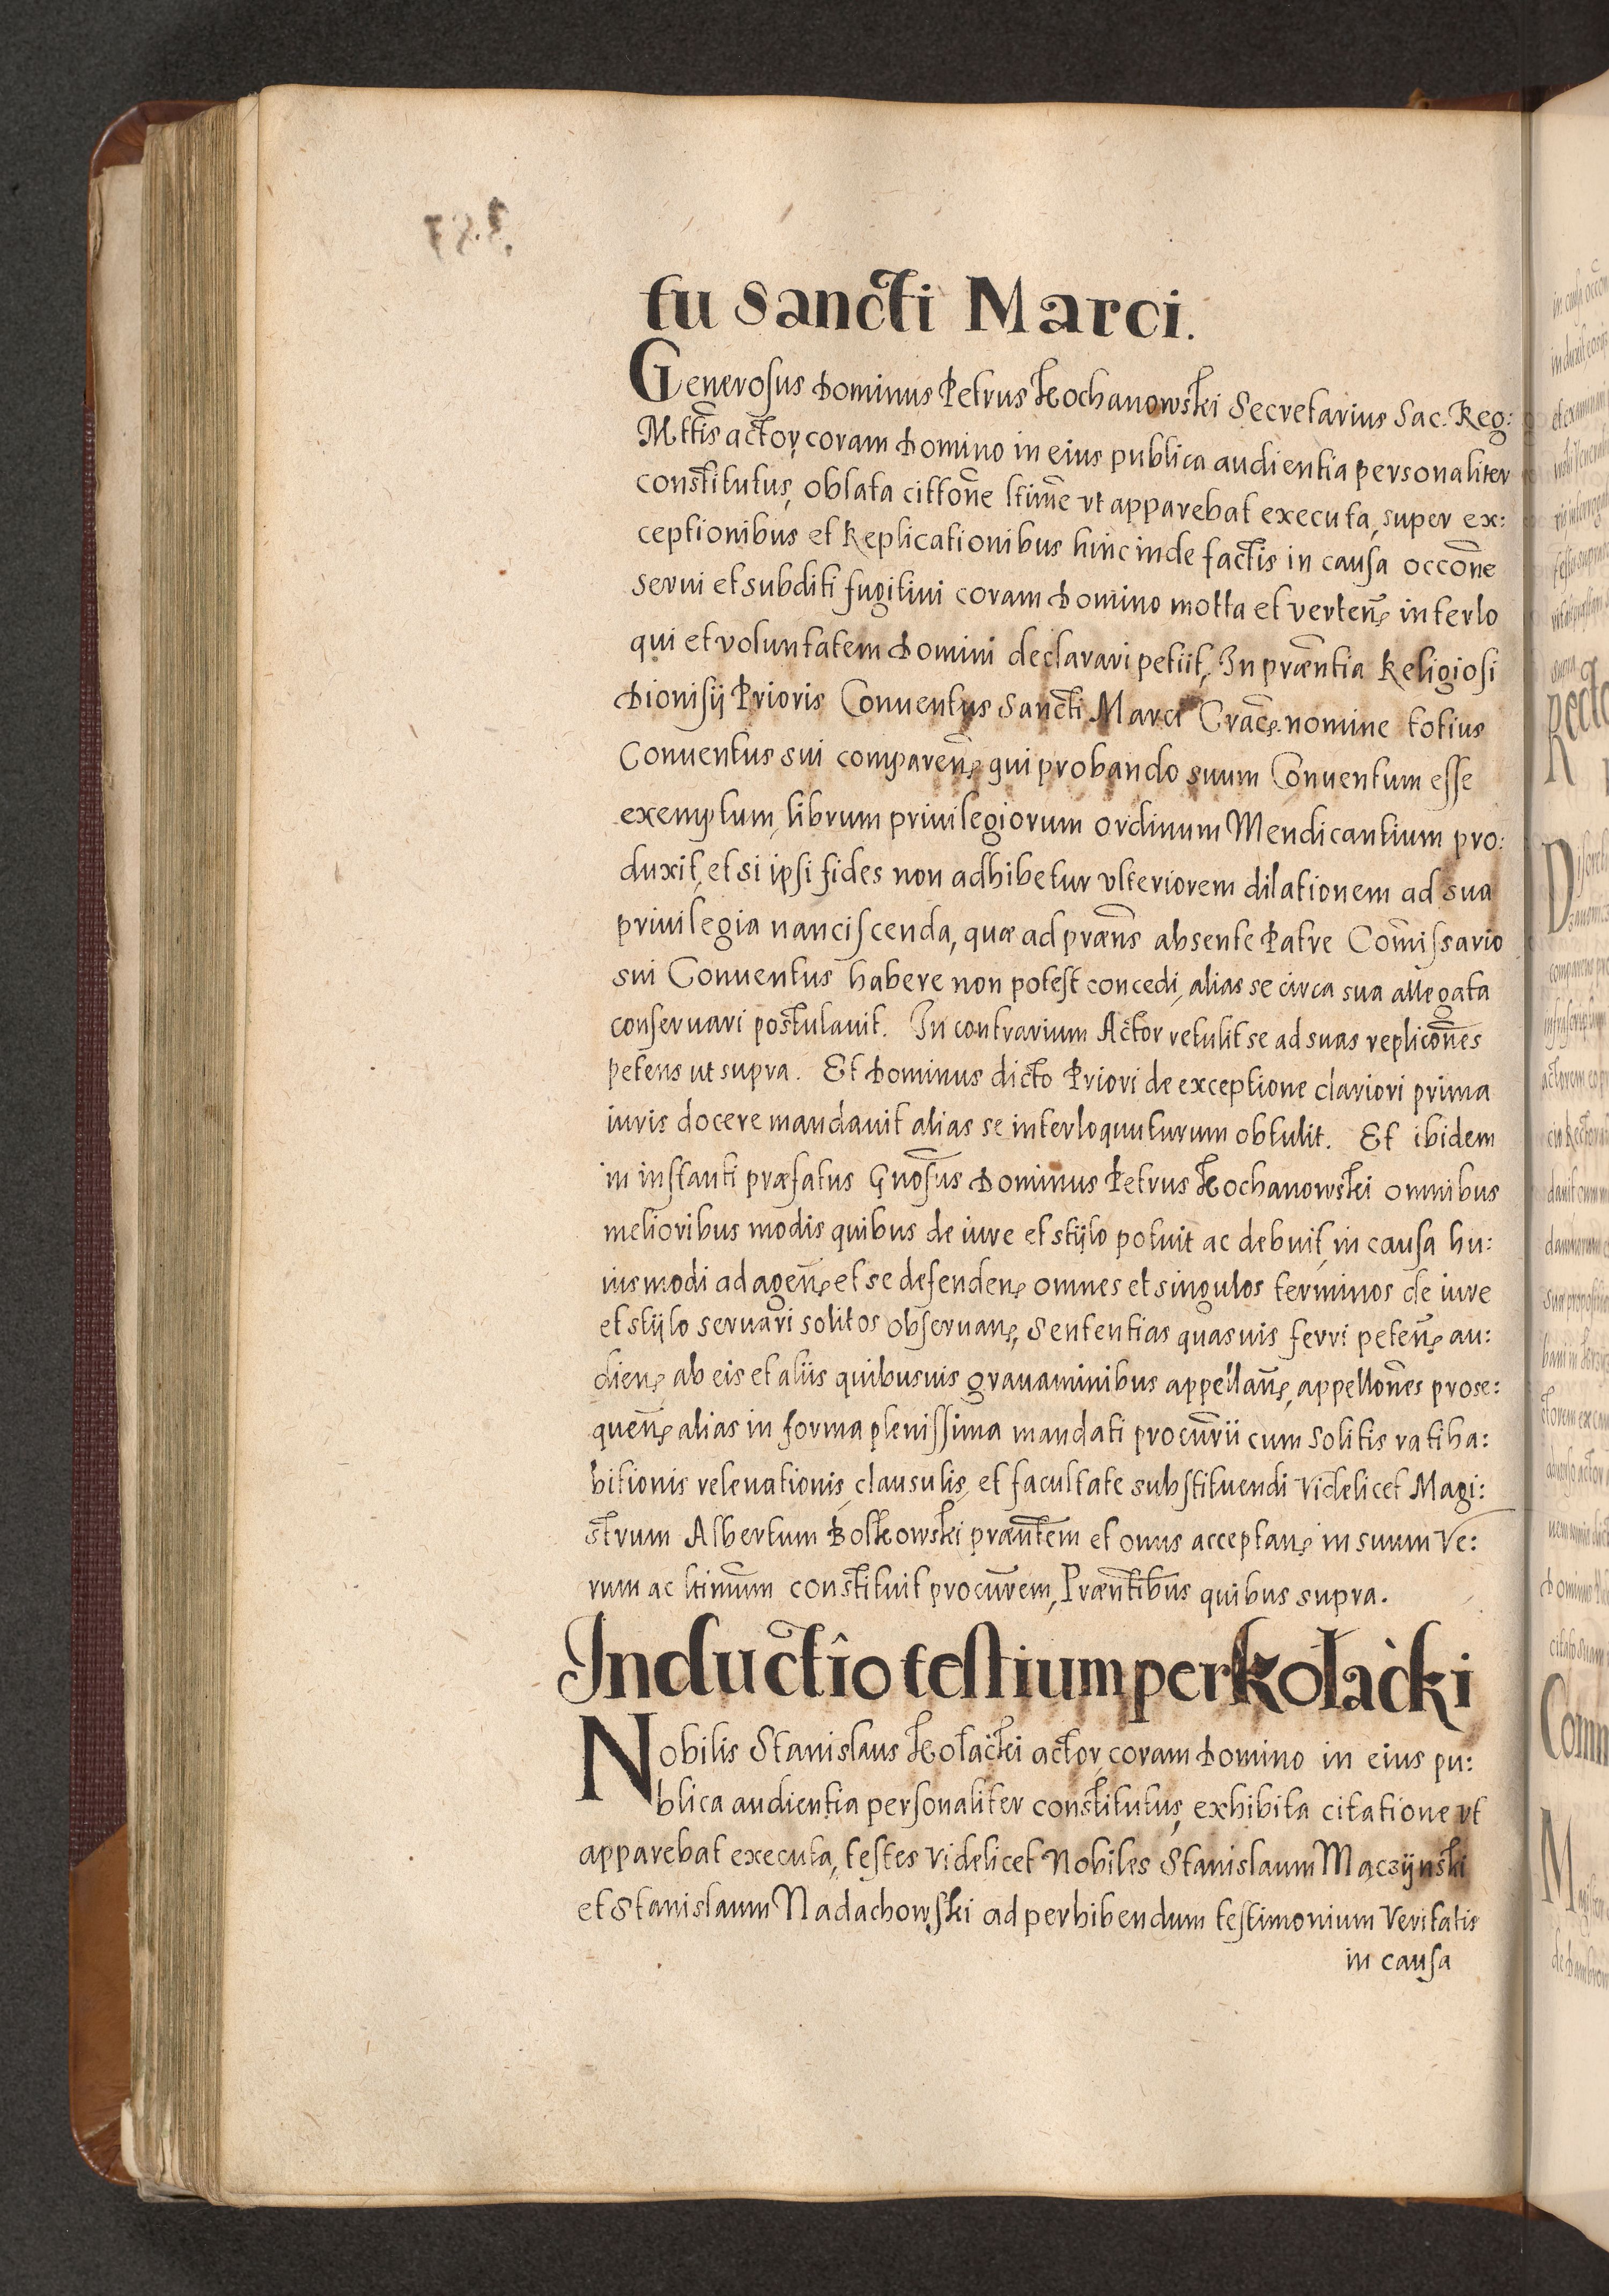 tu sancti Marci.
Generosus Dominus Petrus Kochanowski Secretarius Sac. Reg:
Mttis actor, coram Domino in eius publica audientia personaliter
constitutus, oblata cittone ltime vt apparebat executa, super ex:
ceptionibus et Replicationibus hinc inde factis in causa occone
serui et subditi fugitiui coram Domino motta et verten. interlo
qui et voluntatem Domini declarari petiit, In præntia Religiosi
Dionisij Prioris Conuentus Sancti Marci Crac. nomine totius
Conuentus sui comparen. qui probando suum Conuentum esse
exemptum, librum priuilegiorum ordinum Mendicantium pro:
duxit, et si ipsi fides non adhibetur vlteriorem dilationem ad sua
priuilegia nanciscenda, quæ ad præns absente Patre Comissario
sui Conuentus habere non potest concedi, alias se circa sua allegata
conseruari postulauit. In contrarium Actor retulit se ad suas replicones
petens ut supra. Et Dominus dicto Priori de exceptione clariori prima
iuris docere mandauit alias se interloquuturum obtulit. Et ibidem
in instanti præfatus Gnosus Dominus Petrus Kochanowski omnibus
melioribus modis quibus de iure et stijlo potuit ac debuit, in causa hu:
iusmodi ad agen. et se defenden. omnes et singulos terminos de iure
et stijlo seruari solitos obseruan., Sententias quasuis ferri peten. au:
dien. ab eis et aliis quibusuis grauaminibus appellan., appellones prose:
quen. alias in forma plenissima mandati procurii cum solitis ratiha:
bitionis releuationis, clausulis, et facultate substituendi videlicet Magi:
strum Albertum Bolkowski præntem et onus acceptan. in suum ve:
rum ac ltimum constituit procurem, Præntibus quibus supra.
Inductio testium per Kołacki
Nobilis Stanislaus Kołacki actor, coram Domino in eius pu:
blica audientia personaliter constitutus, exhibita citatione vt
apparebat executa, testes videlicet Nobiles Stanislaum Mączijnski
et Stanislaum Nadachowski ad perhibendum testimonium veritatis
in causa